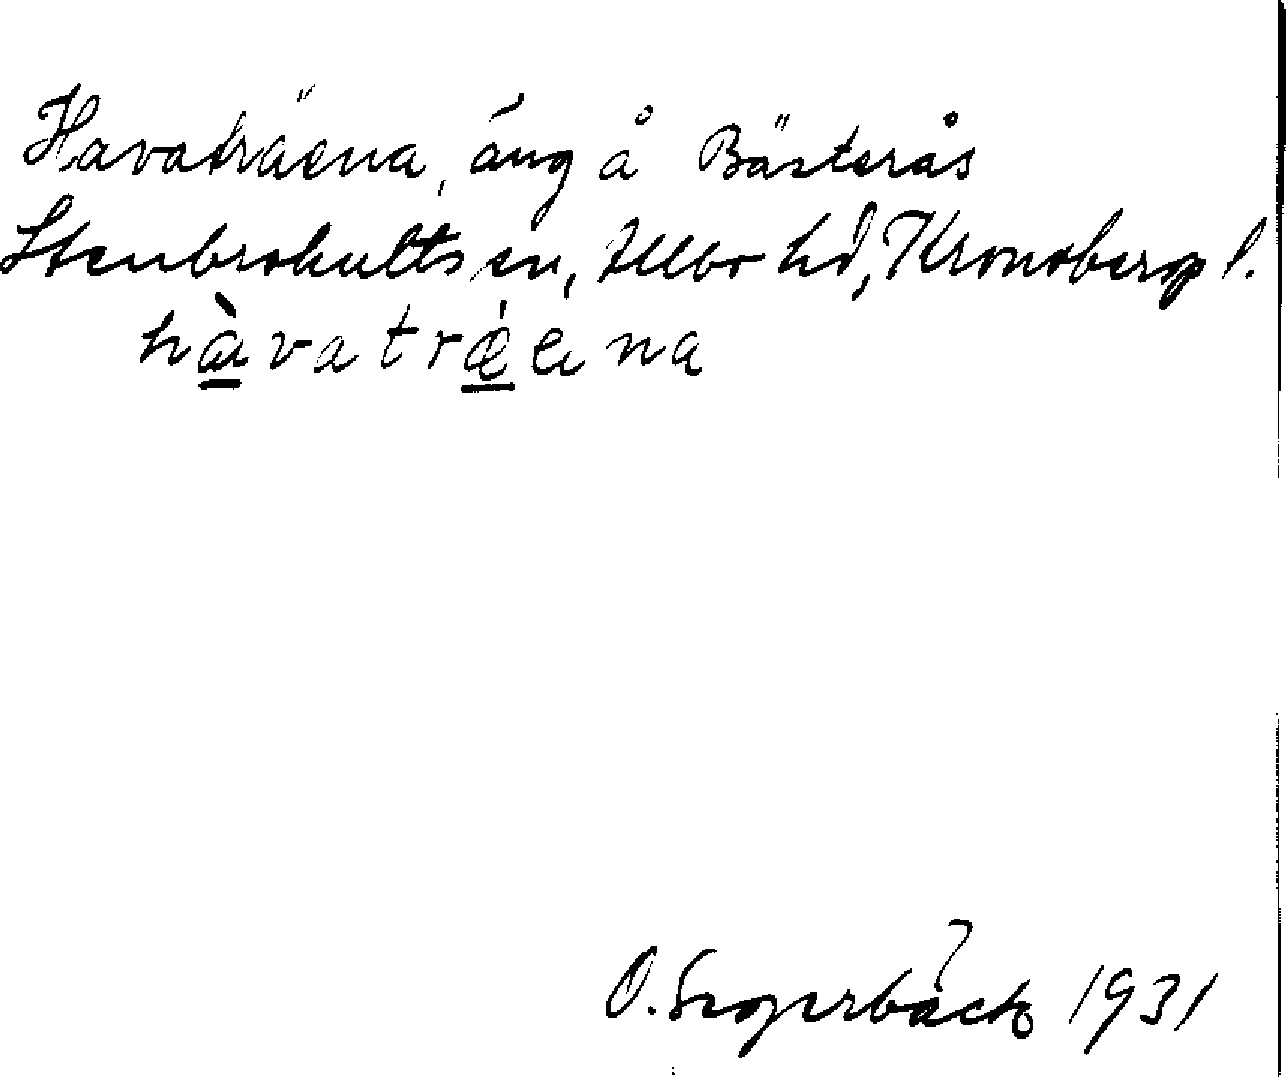 Havaträena, äng å Bästerås
Stenbrohults sn, Allbo hd, Kronobergs l.
hàvatrǽena
O. Segerbäck 1931